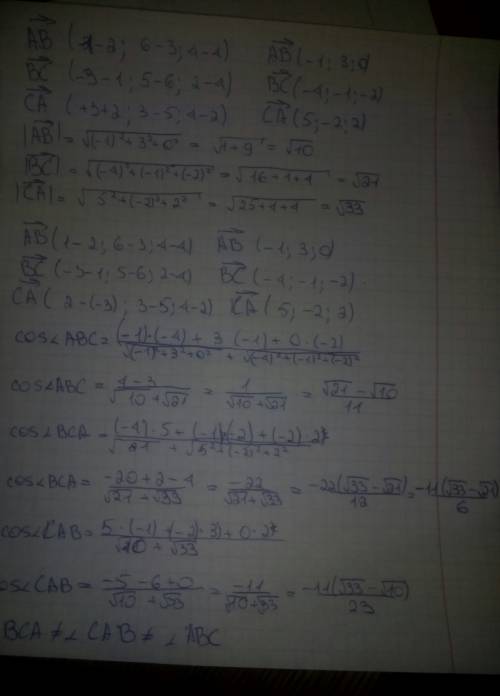 AB (1-2; 6-3; 4-4) AB (-1; 3; 0)
BC (-3-1; 5-6; 2-4) BC (-4; -1; -2)
CA (+3+2; 3-5; 4-2) CA (5; -2; 2)
|AB| = √(-1)²+3²+0² = √1+9 = √10
|BC| = √(-4)²+(-1)²+(-2)² = √16+1+4 = √21
|CA| = √5²+(-2)²+2² = √25+4+4 = √33
AB (1-2; 6-3; 4-4) AB (-1; 3; 0)
BC (-3-1; 5-6; 2-4) BC (-4; -1; -2)
CA (2-(-3); 3-5; 4-2) CA (5; -2; 2)
cos∠ABC = (-1)·(-4) + 3·(-1) + 0·(-2) / √(-1)²+3²+0² + √(-4)²+(-1)²+(-2)²
cos∠ABC = 4-3 / √10+√21 = 1 / √10+√21 = √21-√10 / 11
cos∠BCA = (-4)·5+(-1)·(-2)+(-2)·2 / √21 + √5²+(-2)²+2²
cos∠BCA = -20+2-4 / √21+√33 = -22 / √21+√33 = -22(√33-√21) / 12 = -11(√33-√21) / 6
cos∠CAB = 5·(-1)+(-2)·3)+0·2 / √10+√33
cos∠CAB = -5-6+0 / √10+√33 = -11 / √10+√33 = -11(√33-√10) / 23
BCA ≠ ∠CAB ≠ ∠ABC